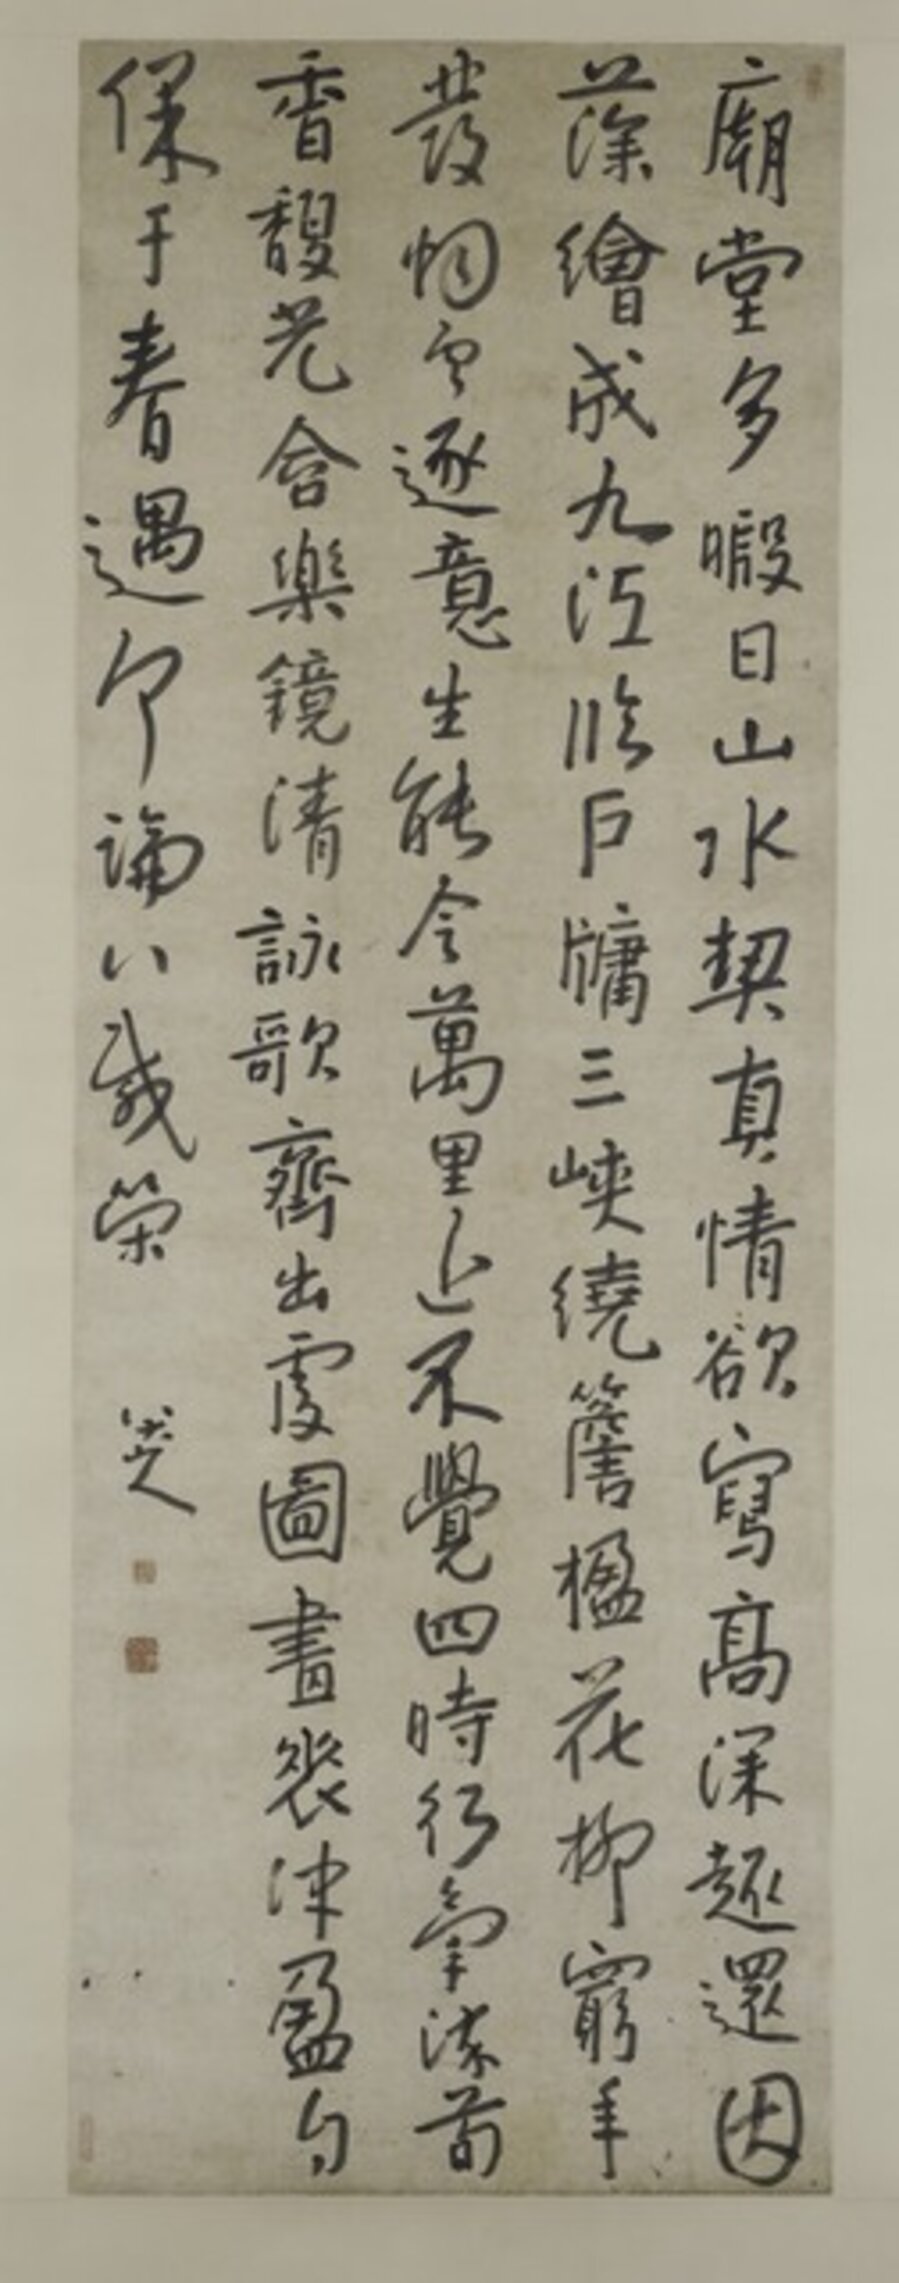 廟堂多暇日山水契真情欲寫高深趣還因
藻繪成九江臨戶牖三峽繞簷楹花柳窮年
發烟雲逐意生能令萬里近不覺四時行氣染荀
香馥光含樂鏡清詠歌齊出處圖畫表沖盈自
保千春遇寧論八載榮 八大山人